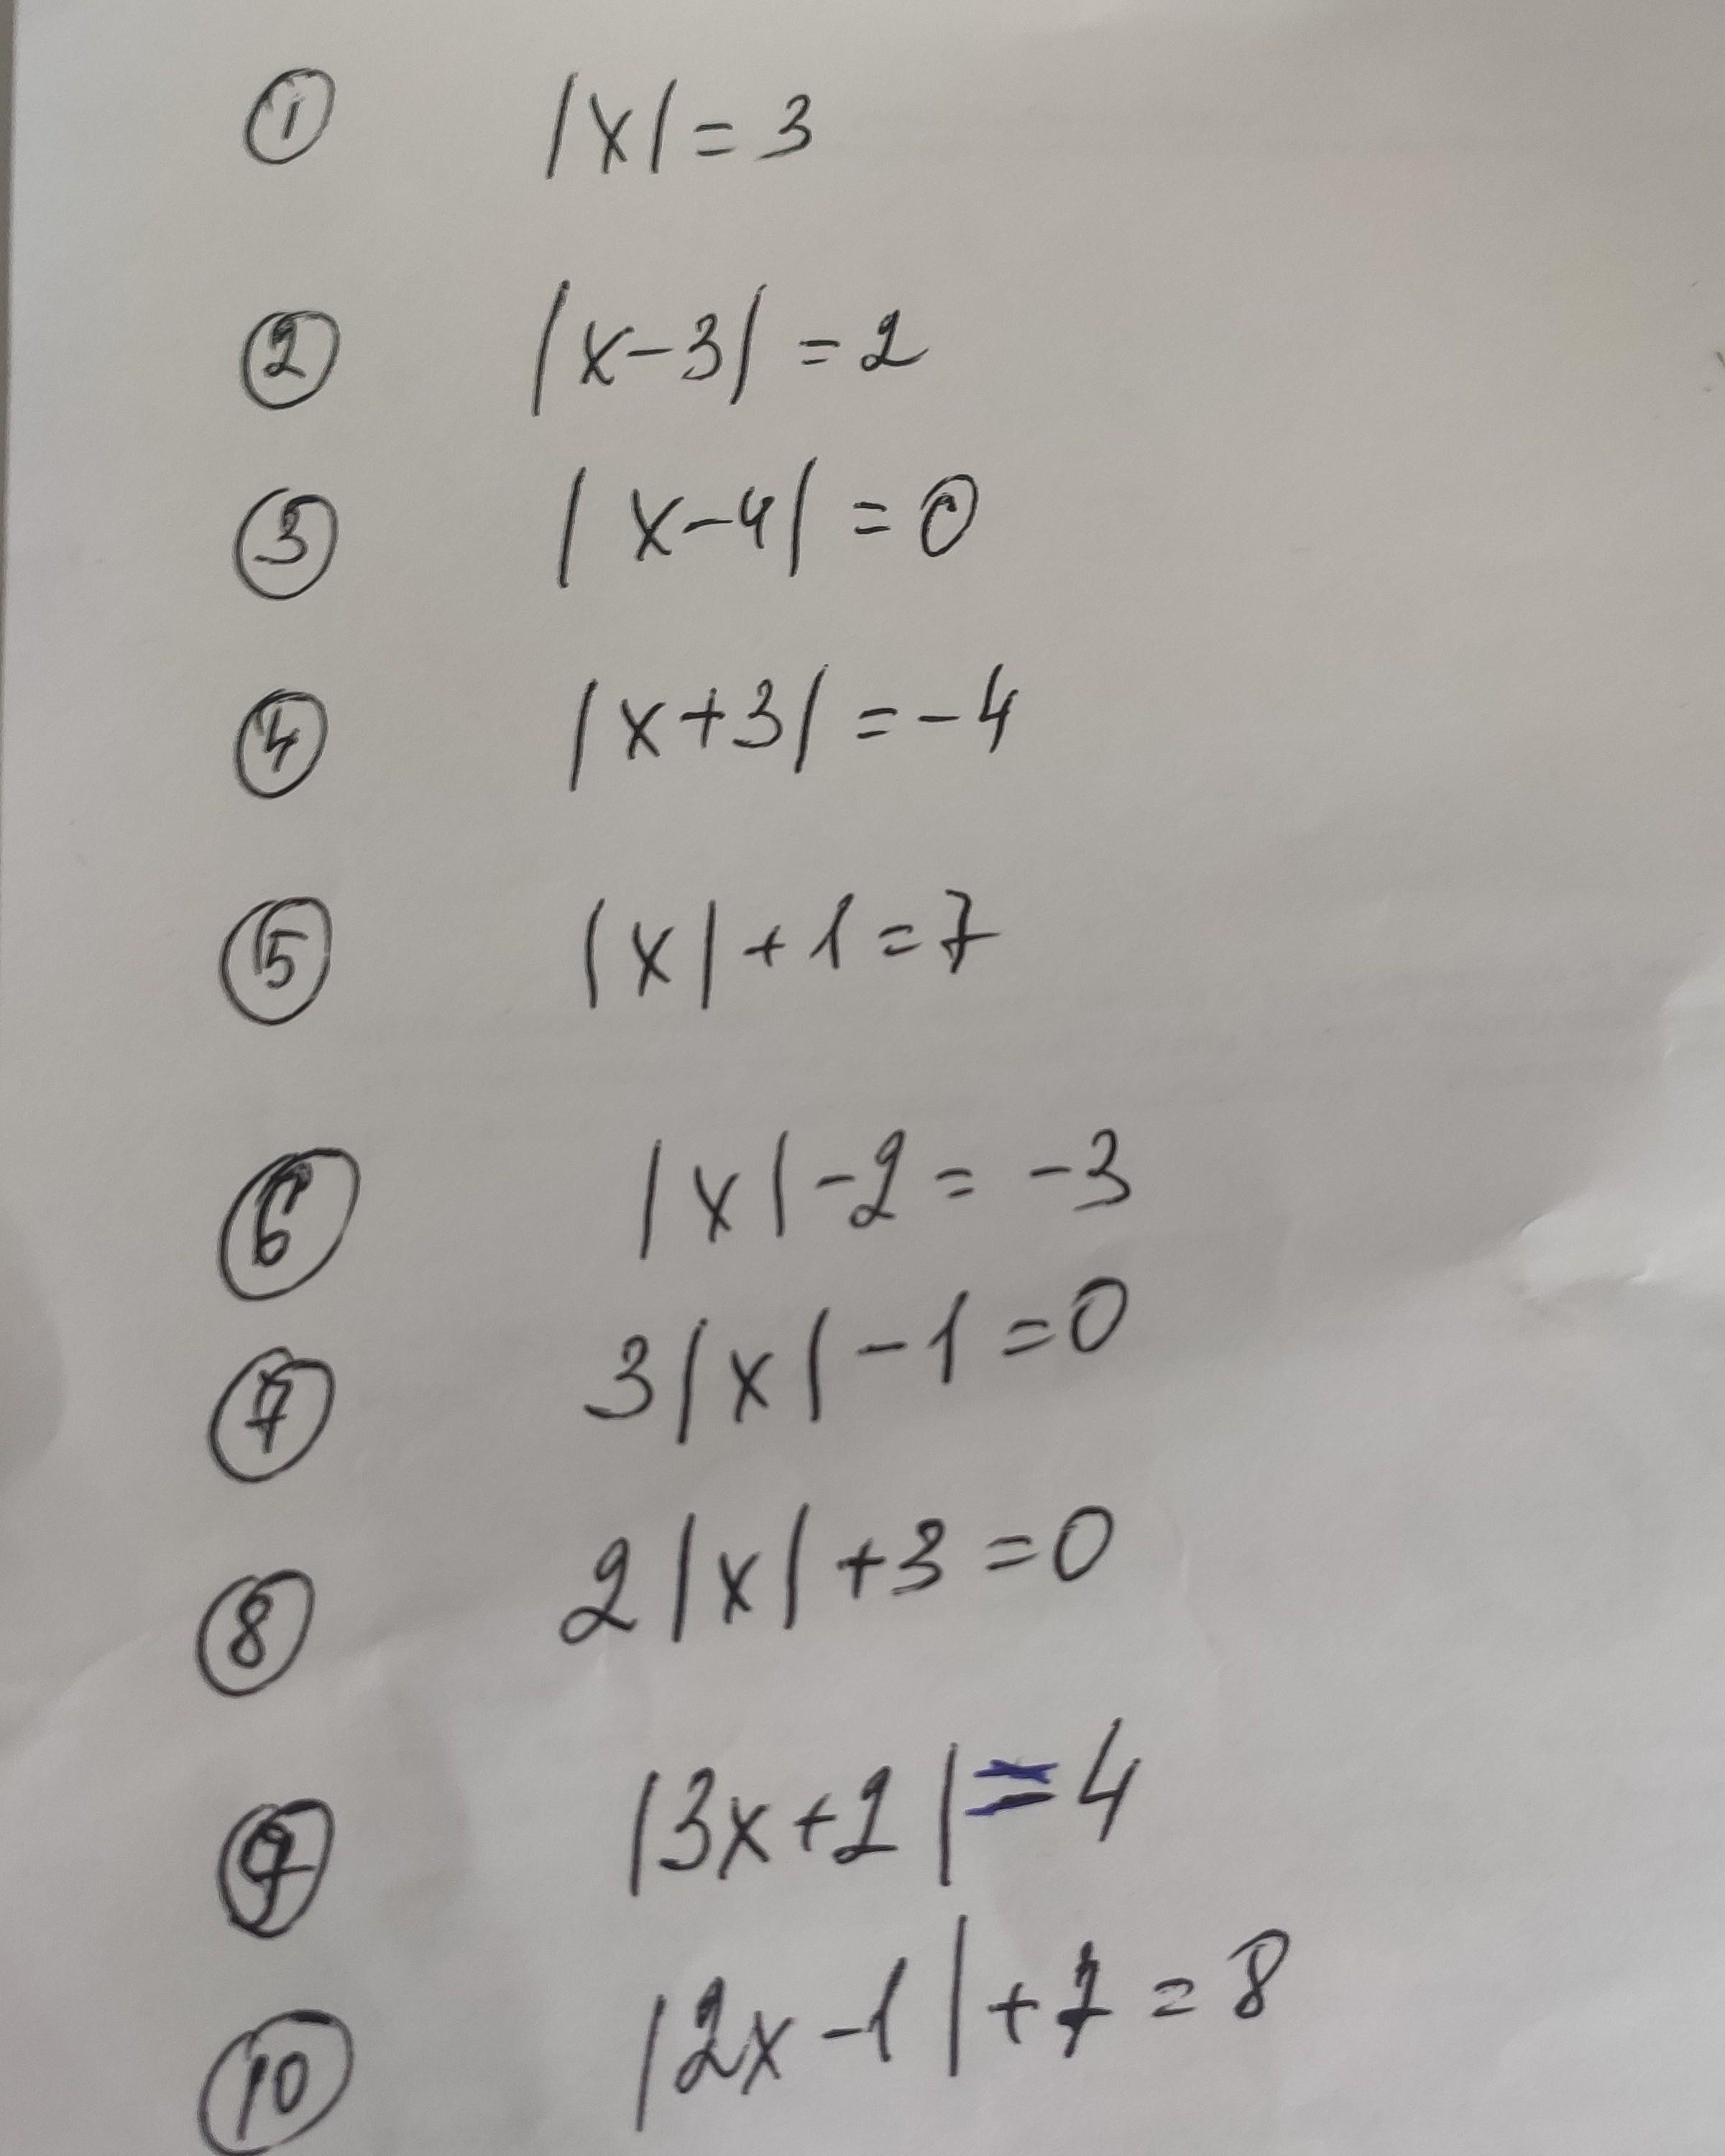 ① |x| = 3
② |x-3| = 2
③ |x-4| = 0
④ |x+3| = -4
⑤ |x| + 1 = 7
⑥ |x| - 2 = -3
⑦ 3|x| - 1 = 0
⑧ 2|x| + 3 = 0
⑨ |3x+2| = 4
⑩ |2x-1| + 7 = 8